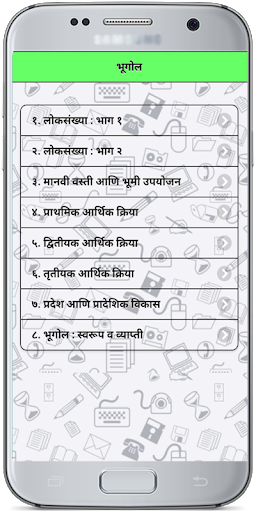 भूगोल
१. लोकसंख्या : भाग १
२. लोकसंख्या : भाग २
३. मानवी वस्ती आणि भूमी उपयोजन
४. प्राथमिक आर्थिक क्रिया
५. द्वितीयक आर्थिक क्रिया
६. तृतीयक आर्थिक क्रिया
७. प्रदेश आणि प्रादेशिक विकास
८. भूगोल : स्वरूप व व्याप्ती